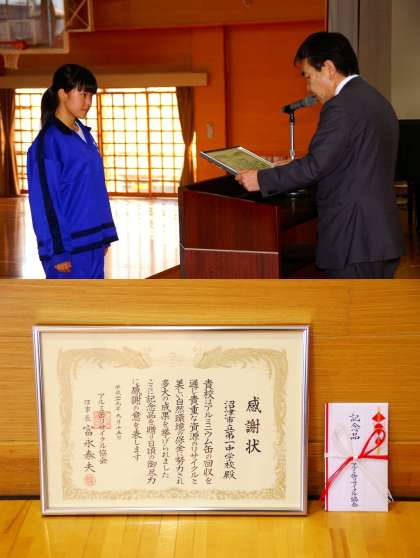 感謝状
沼津市立第一中学校殿
貴校はアルミニウム缶の回収を
通じ貴重な資源のリサイクルと
美しい自然環境の保全に努力され
多大の成果を挙げられました
ここに記念品を贈り日頃の御尽力
に感謝の意を表します
アルミ缶リサイクル協会
理事長 富永泰夫
記念品
アルミ缶リサイクル協会